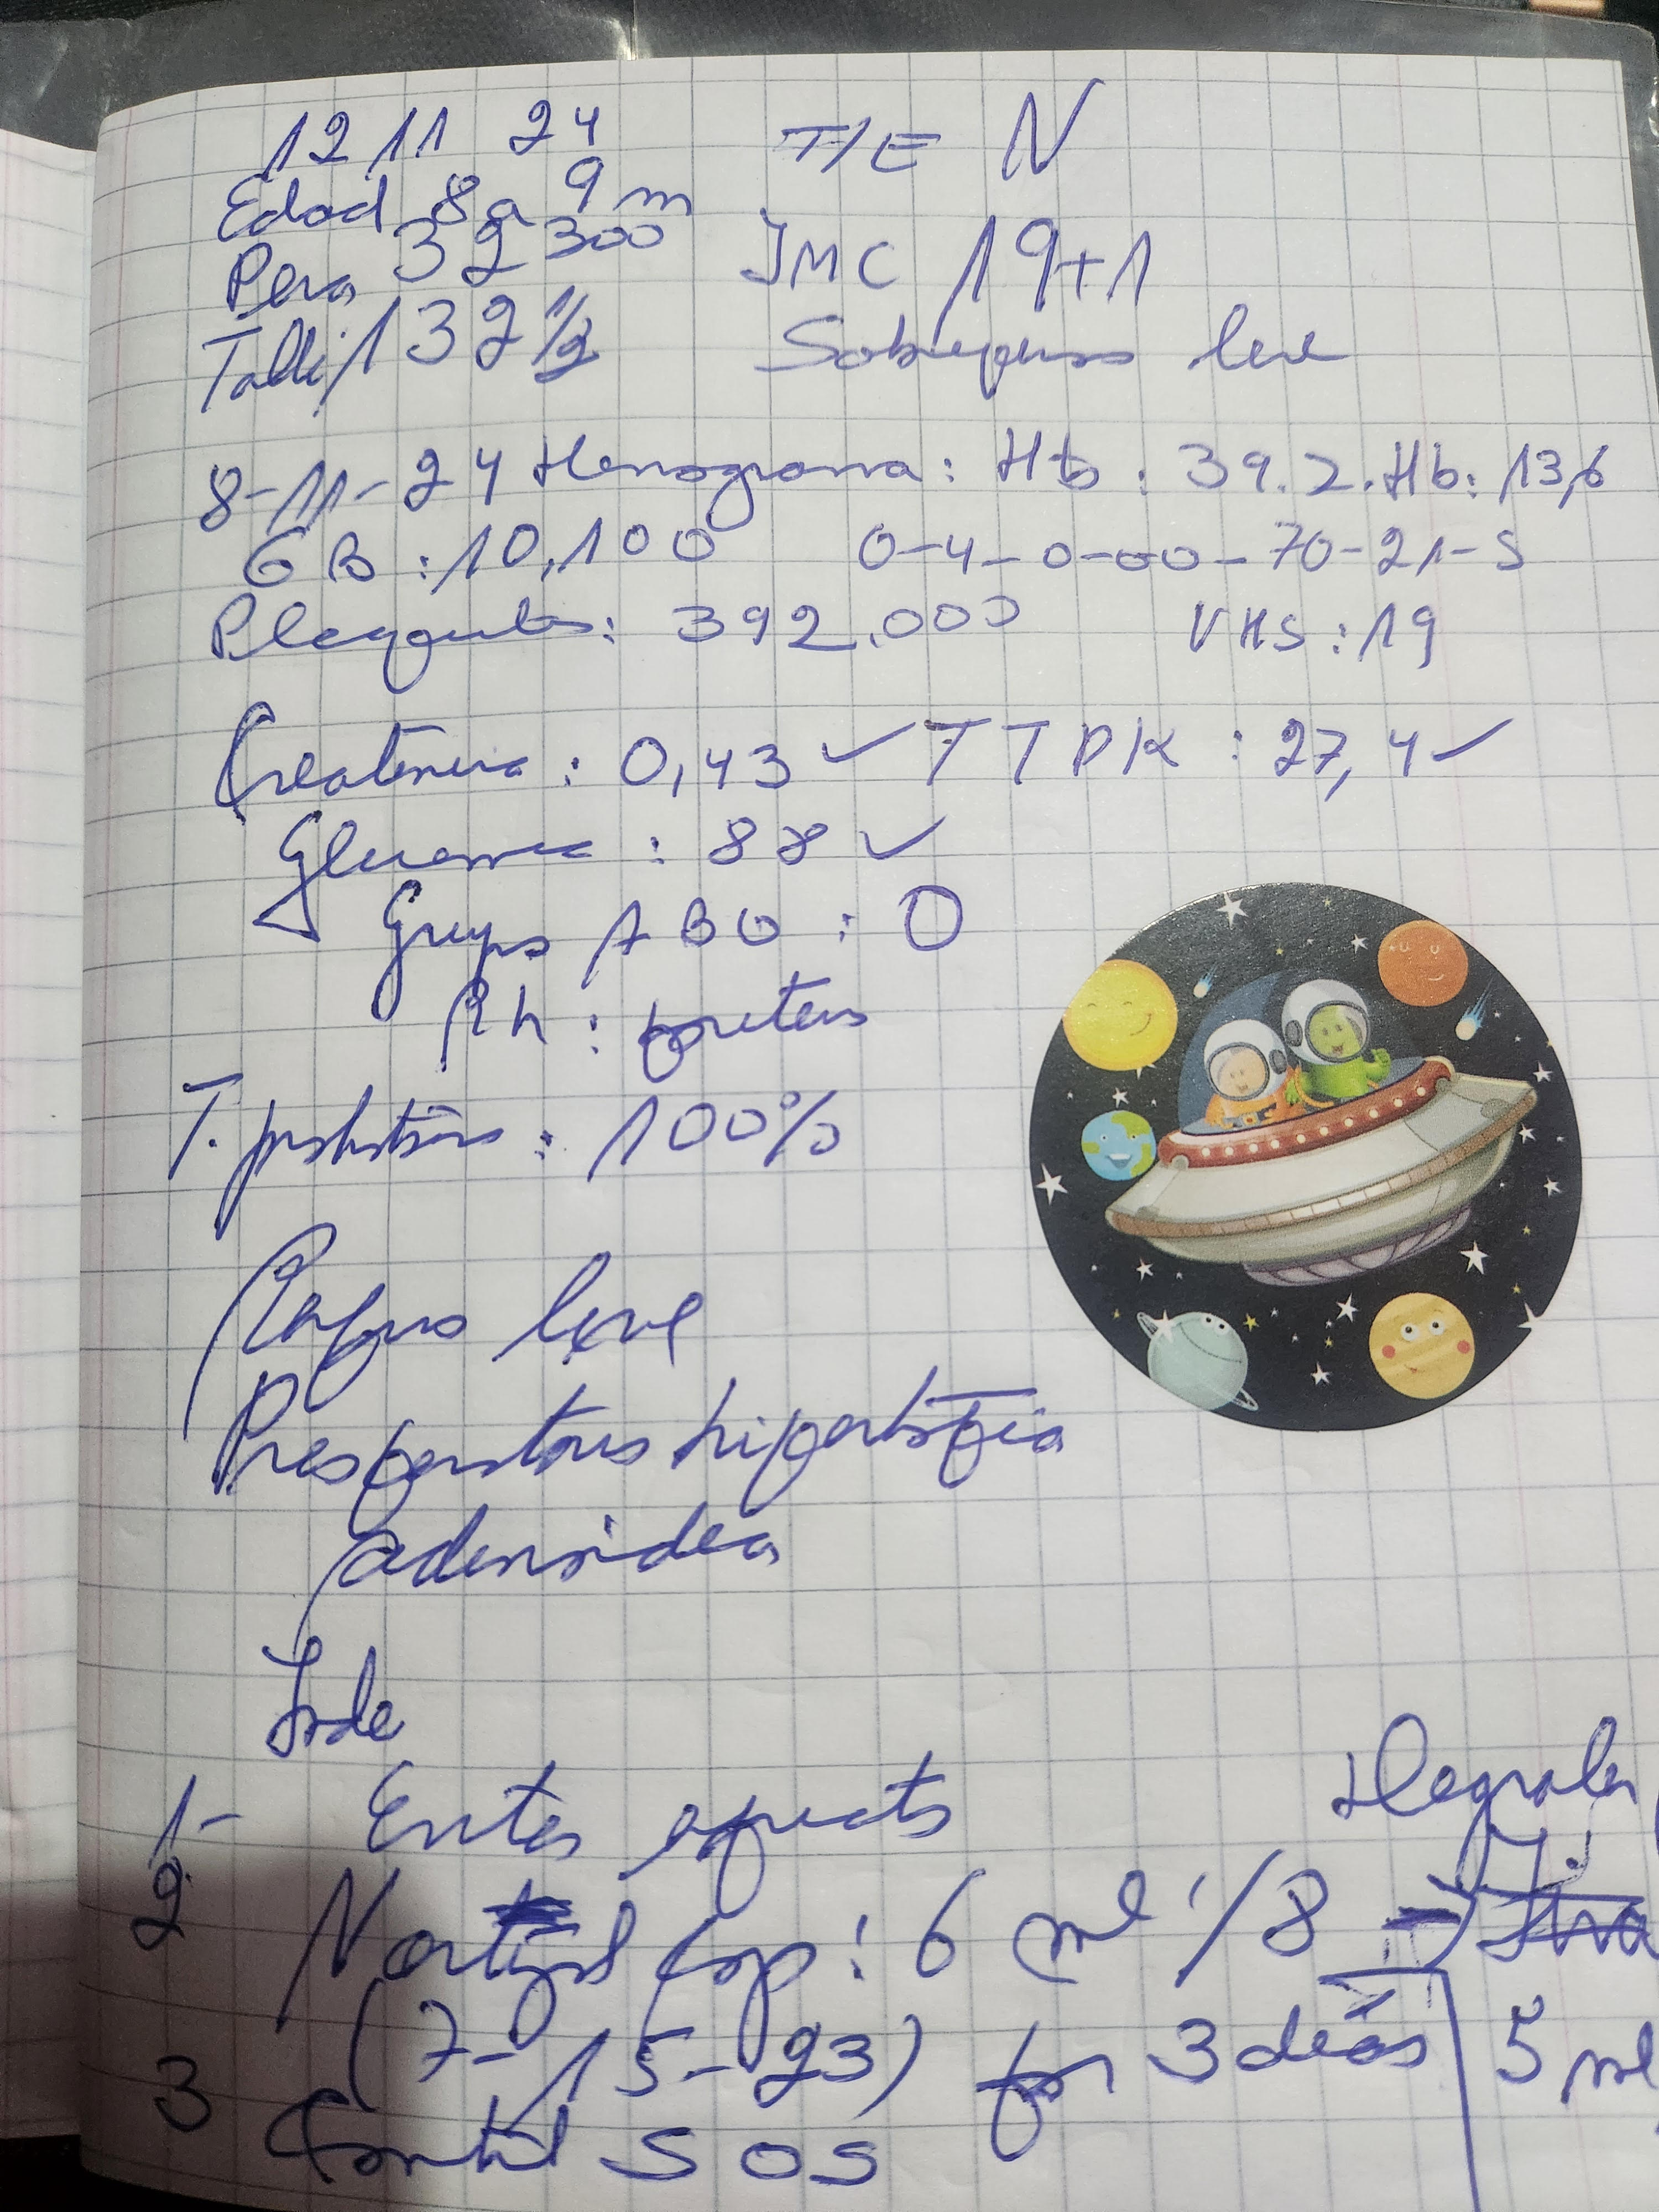 12 11 24 T/E N
Edad 8a 9m
Peso 32 300 IMC 19+1
Talla 132 1/2 Sobrepeso leve
8-11-24 Hemograma: Htb: 39.2. Hb: 13,6
GB: 10,100 0-4-0-00-70-21-5
Plaquetas: 392.000 VHS: 19
Creatinina: 0,43 ✓ TTPK: 27,4 ✓
Glicemia: 88 ✓
Grupo ABO: O
Rh:
T. protrombina: 100%
leve
hipertrofia
adenoidea
Inde
1-
2 6 ml c/8 →
(7-15-23) por 3 días 5 ml
3 Control SOS